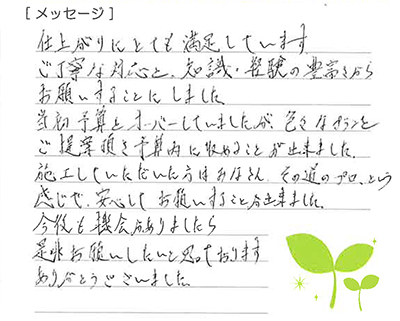 [メッセージ]
仕上がりにとても満足しています
ご丁寧な対応と、知識・経験の豊富さから
お願いすることにしました
当初予算とオーバーしていましたが、色々なプランを
ご提案頂き予算内に収めることが出来ました。
施工していただいた方はみなさん、その道のプロ、という
感じで、安心してお願いすること出来ました。
今後も機会がありましたら
是非お願いしたいと思っております
ありがとうございました。